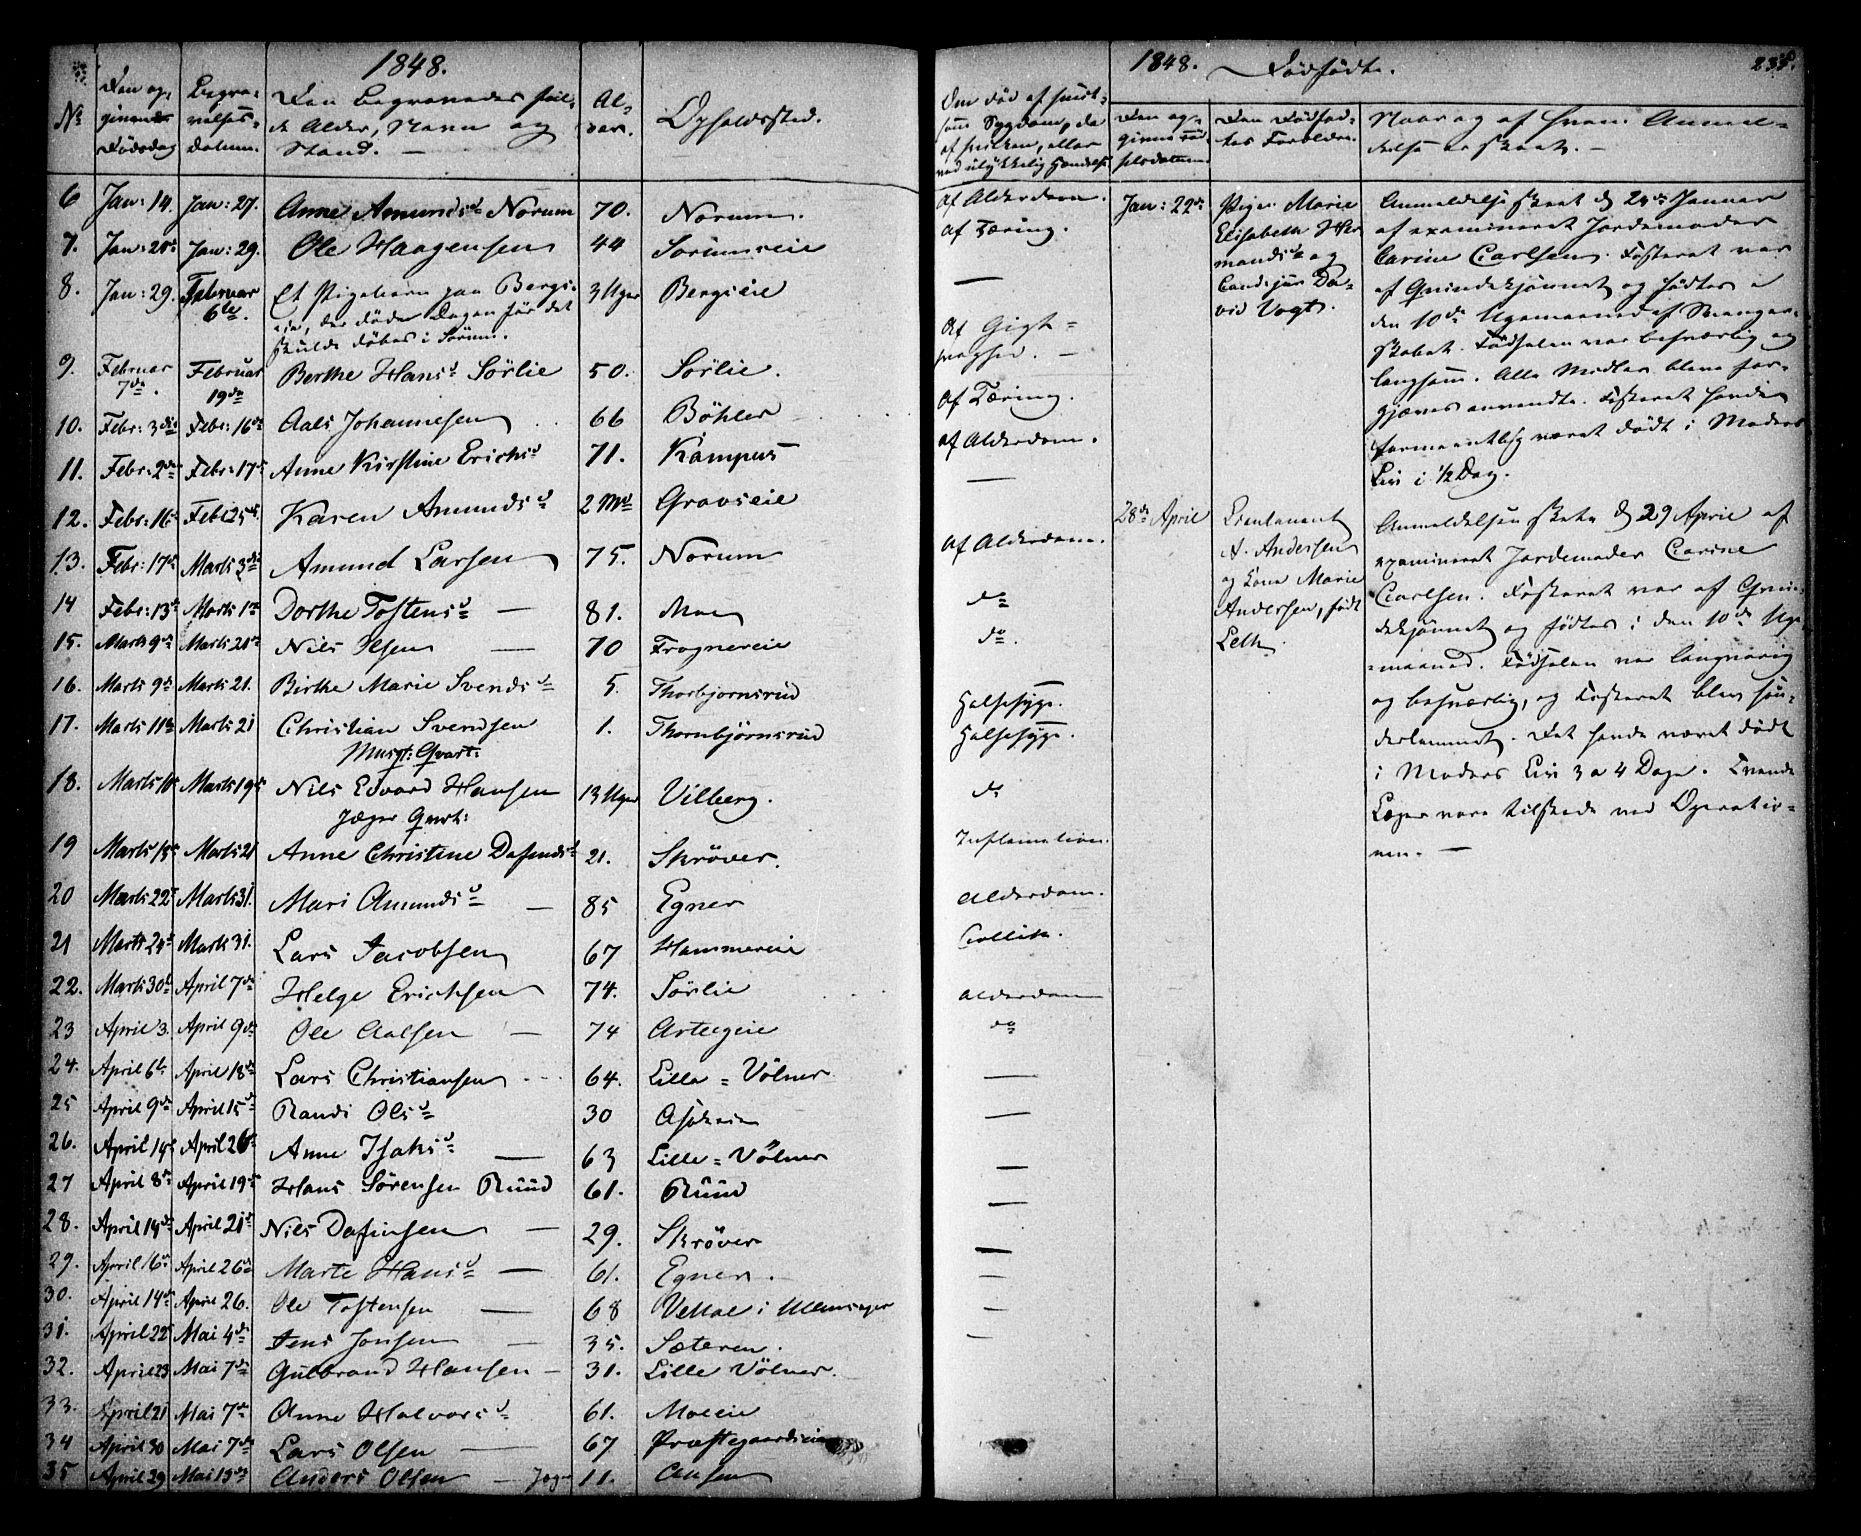 1848.
№
Den op-
givende
Dødsdag
Begra-
velses-
Datum.
Den Begravedes ful-
de Alder, Navn og
Stand. —
Al-
der.
Opholdssted.
6 Jan: 14. Jan: 27. Anne Amundsd Norum 70. Norum.
7. Jan: 20de Jan: 29. Ole Haagensen 44 Sörumseie
8. Jan: 29. Februar 6te. Et Pigebarn paa Bergs- 3 Uger Bergseie
eie, der døde Dagen før det
skulde døbes i Sørum.
9. Februar 7de. Februar 19de Berthe Hansd Sörlie 50. Sörlie.
10. Febr: 3die Febr: 16de Aals Johannesen 66 Böhler
11. Febr: 2de Febr: 17de Anne Kirstine Erichsd 71. Kampus
12. Febr: 16de Febr 25de Karen Amundsd 2 Md Gravseie
13. Febr: 17de Marts 3die Amund Larsen 75. Norum
14 Febr: 13de Marts 1ste Dorthe Tostensd — 81. Moe
15. Marts 9de Marts 21de Nils Olsen — 70 Frognereie
16. Marts 9de Marts 21. Birthe Marie Svendsd 5. Thorbjornsrud
17. Marts 11te Marts 21 Christian Svendsen 1. Thornbjörnsrud
Musqt: Qvart:
18. Marts 10de Marts 19de Nils Edvard Hansen 13 Uger Vilberg.
Jæger Qvart:
19 Marts 15de Marts 21 Anne Christine Dafindsd 21. Skröver.
20 Marts 22de Marts 31. Mari Amundsd — 85 Egner
21 Marts 24de Marts 31. Lars Jacobsen 67 Hammereie
22. Marts 30te April 7de Helge Erichsen 74. Sörlie
23 April 3. April 9de Ole Aalsen — 74 Asteeie
24. April 6te April 18de Lars Christiansen 64. Lille = Völner
25 April 9de April 15de Randi Olsd 30
26. April 14de April 26de Anne Isaksd — 63 Lille = Völner
27 April 8de April 19de Hans Sörensen Ruud 61. Ruud
28. April 14de April 21de Nils Dafinsen — 29. Skröver
29. April 16de April 26de Marte Hansd — 61. Egner.
30. April 14de April 26. Ole Tostensen — 68 i Ullensager
31. April 22de Mai 4de Jens Jonsen — 35. Sæteren.
32. April 23 Mai 7de Gulbrand Hansen — 31. Lille Völner.
33. April 21 Mai 7de Anne Halvorsd 61. Moeeie
34 April 30 Mai 7de Lars Olsen — 67 Præstegaardseie
35 April 29 Mai 13de Anders Olsen — Jæger 11.
Om død af smit-
som Sygdom, da
af hvilken, eller
ved ulykkelig Hændelse
af Alderdom.
af Tæring.
—
Af Gigt =
svaghed. —
Af Tæring.
af Alderdom.
—
af Alderdom.
do
do.
Halsesyge.
Halsesyge.
do
Inflamation.
Alderdom.
Collik.
Alderdom
do
—
—
—
—
—
—
—
—
1848. Dødfødte. 235.
Den op-
givne Fød-
selsdatum
Den Dødfød-
tes Forældre.
Naar og af hvem Anmel-
delse er skeet. —
Jan: 22de
Pige Marie
Elisabeth Her
mandsd og
Landsjur Da-
vid Vogt.
Anmeldelse skeet d 24de Januar
af examineret Jordemoder
Carine Carlsen. Fosteret var
af Qvindekjønnet og fødtes i
den 10de Ugemaaned af Svanger-
skabet. Fødselen var besværlig og
langsom. Alle Midler bleve for-
gjæves anvendte. Fosteret havde
formeentlig været dødt i Moders
Liv i ½ Dag.
28de April
Lieutenant
A. Andersen
og Kone Marie
Andersen, født
Leth.
Anmeldelsen skete d 29 April af
examineret Jordemoder Carine
Carlsen. Fosteret var af Qvin-
dekjønnet og fødtes i den 10de Uge
=maaned. Fødselen var langvarig
og besværlig, og Fosteret blev søn-
derlemmet. Det havde været dødt
i Moders Liv 3 a 4 Dage. Tvende
Læger vare tilstede ved Operatio-
nen. —